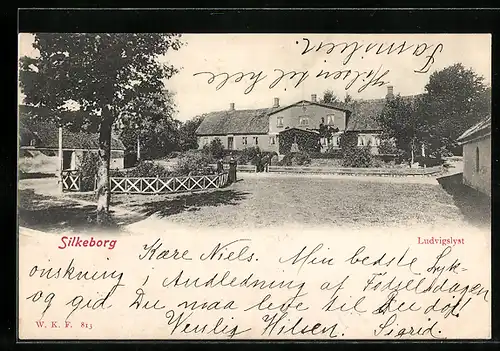 Hilsen til hele
Familien
Silkeborg
Ludvigslyst
Kære Niels. Min bedste Lyk-
ønskning i Andledning af Fødselsdagen
og gid Du maa leve til Du dør!
Venlig Hilsen. Sigrid.
W. K. F. 813